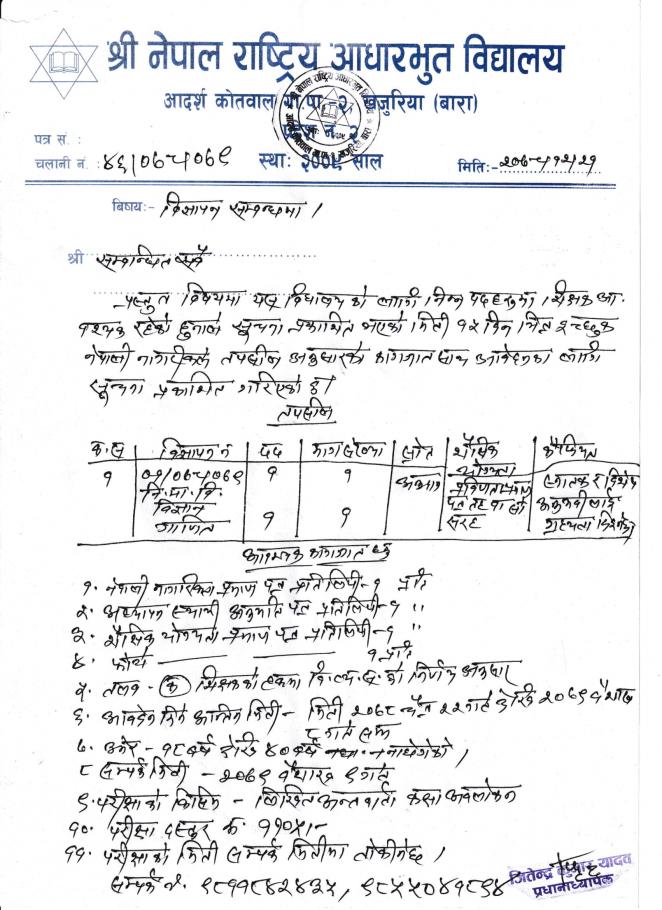 श्री नेपाल राष्ट्रिय आधारभुत विद्यालय
आदर्श कोतवाल गा.पा.-२, खजुरिया (बारा)
प्रदेश नं. २
पत्र सं. :
चलानी नं. : ४६/०७५/०७९ स्था: २००९ साल मिति:- २०७८/१२/२१
बिषय:- विज्ञापन सम्बन्धमा ।
श्री सम्बन्धित सबै
प्रस्तुत विषयमा यस विद्यालयको लागि निम्न पदहरुमा शिक्षक आ-
वश्यक रहेको हुनाले सूचना प्रकाशित भएको मिती १५ दिन भित्र इच्छुक
नेपाली नागरिकले तपसील अनुसारको कागजात साथ आवेदनका लागि
सूचना प्रकाशित गरिएको छ।
तपसील
क्र.स विज्ञापन नं पद माग संख्या स्रोत शैक्षिक योग्यता कैफियत
१ ०१/०७८/०७९ १ १
नि. मा. वि.
विज्ञान
गणित १ १
आवश्यक कागजात हरु
१. नेपाली नागरिकता प्रमाण पत्र प्रतिलिपी-१ प्रति
२. अध्यापन स्थायी अनुमति पत्र प्रतिलिपी-१ "
३. शैक्षिक योग्यता प्रमाण पत्र प्रतिलिपी-१ "
४. फोटो १ प्रति
५. तलब - शिक्षकको हकमा वि.व्य.स. को निर्णय अनुसार
६. आवेदन दिने अन्तिम मिती - मिती २०७८ चैत्र २२ गते देखि २०७९ वैशाख
८ गते सम्म
७. उमेर - १८ वर्ष देखि ४० वर्ष ननाघेको ।
८ सम्पर्क मिती - २०७९ वैशाख ९ गते
९. परीक्षाको किसिम - लिखित अन्तर्वार्ता कक्षा अवलोकन
१०. परीक्षा दस्तुर रु. ११०५।-
११. परीक्षाको मिती सम्पर्क मितीमा तोकिनेछ ।
सम्पर्क नं. ९८११८४२४३५, ९८५५०४१८९४
जितेन्द्र कुमार यादव
प्रधानाध्यापक